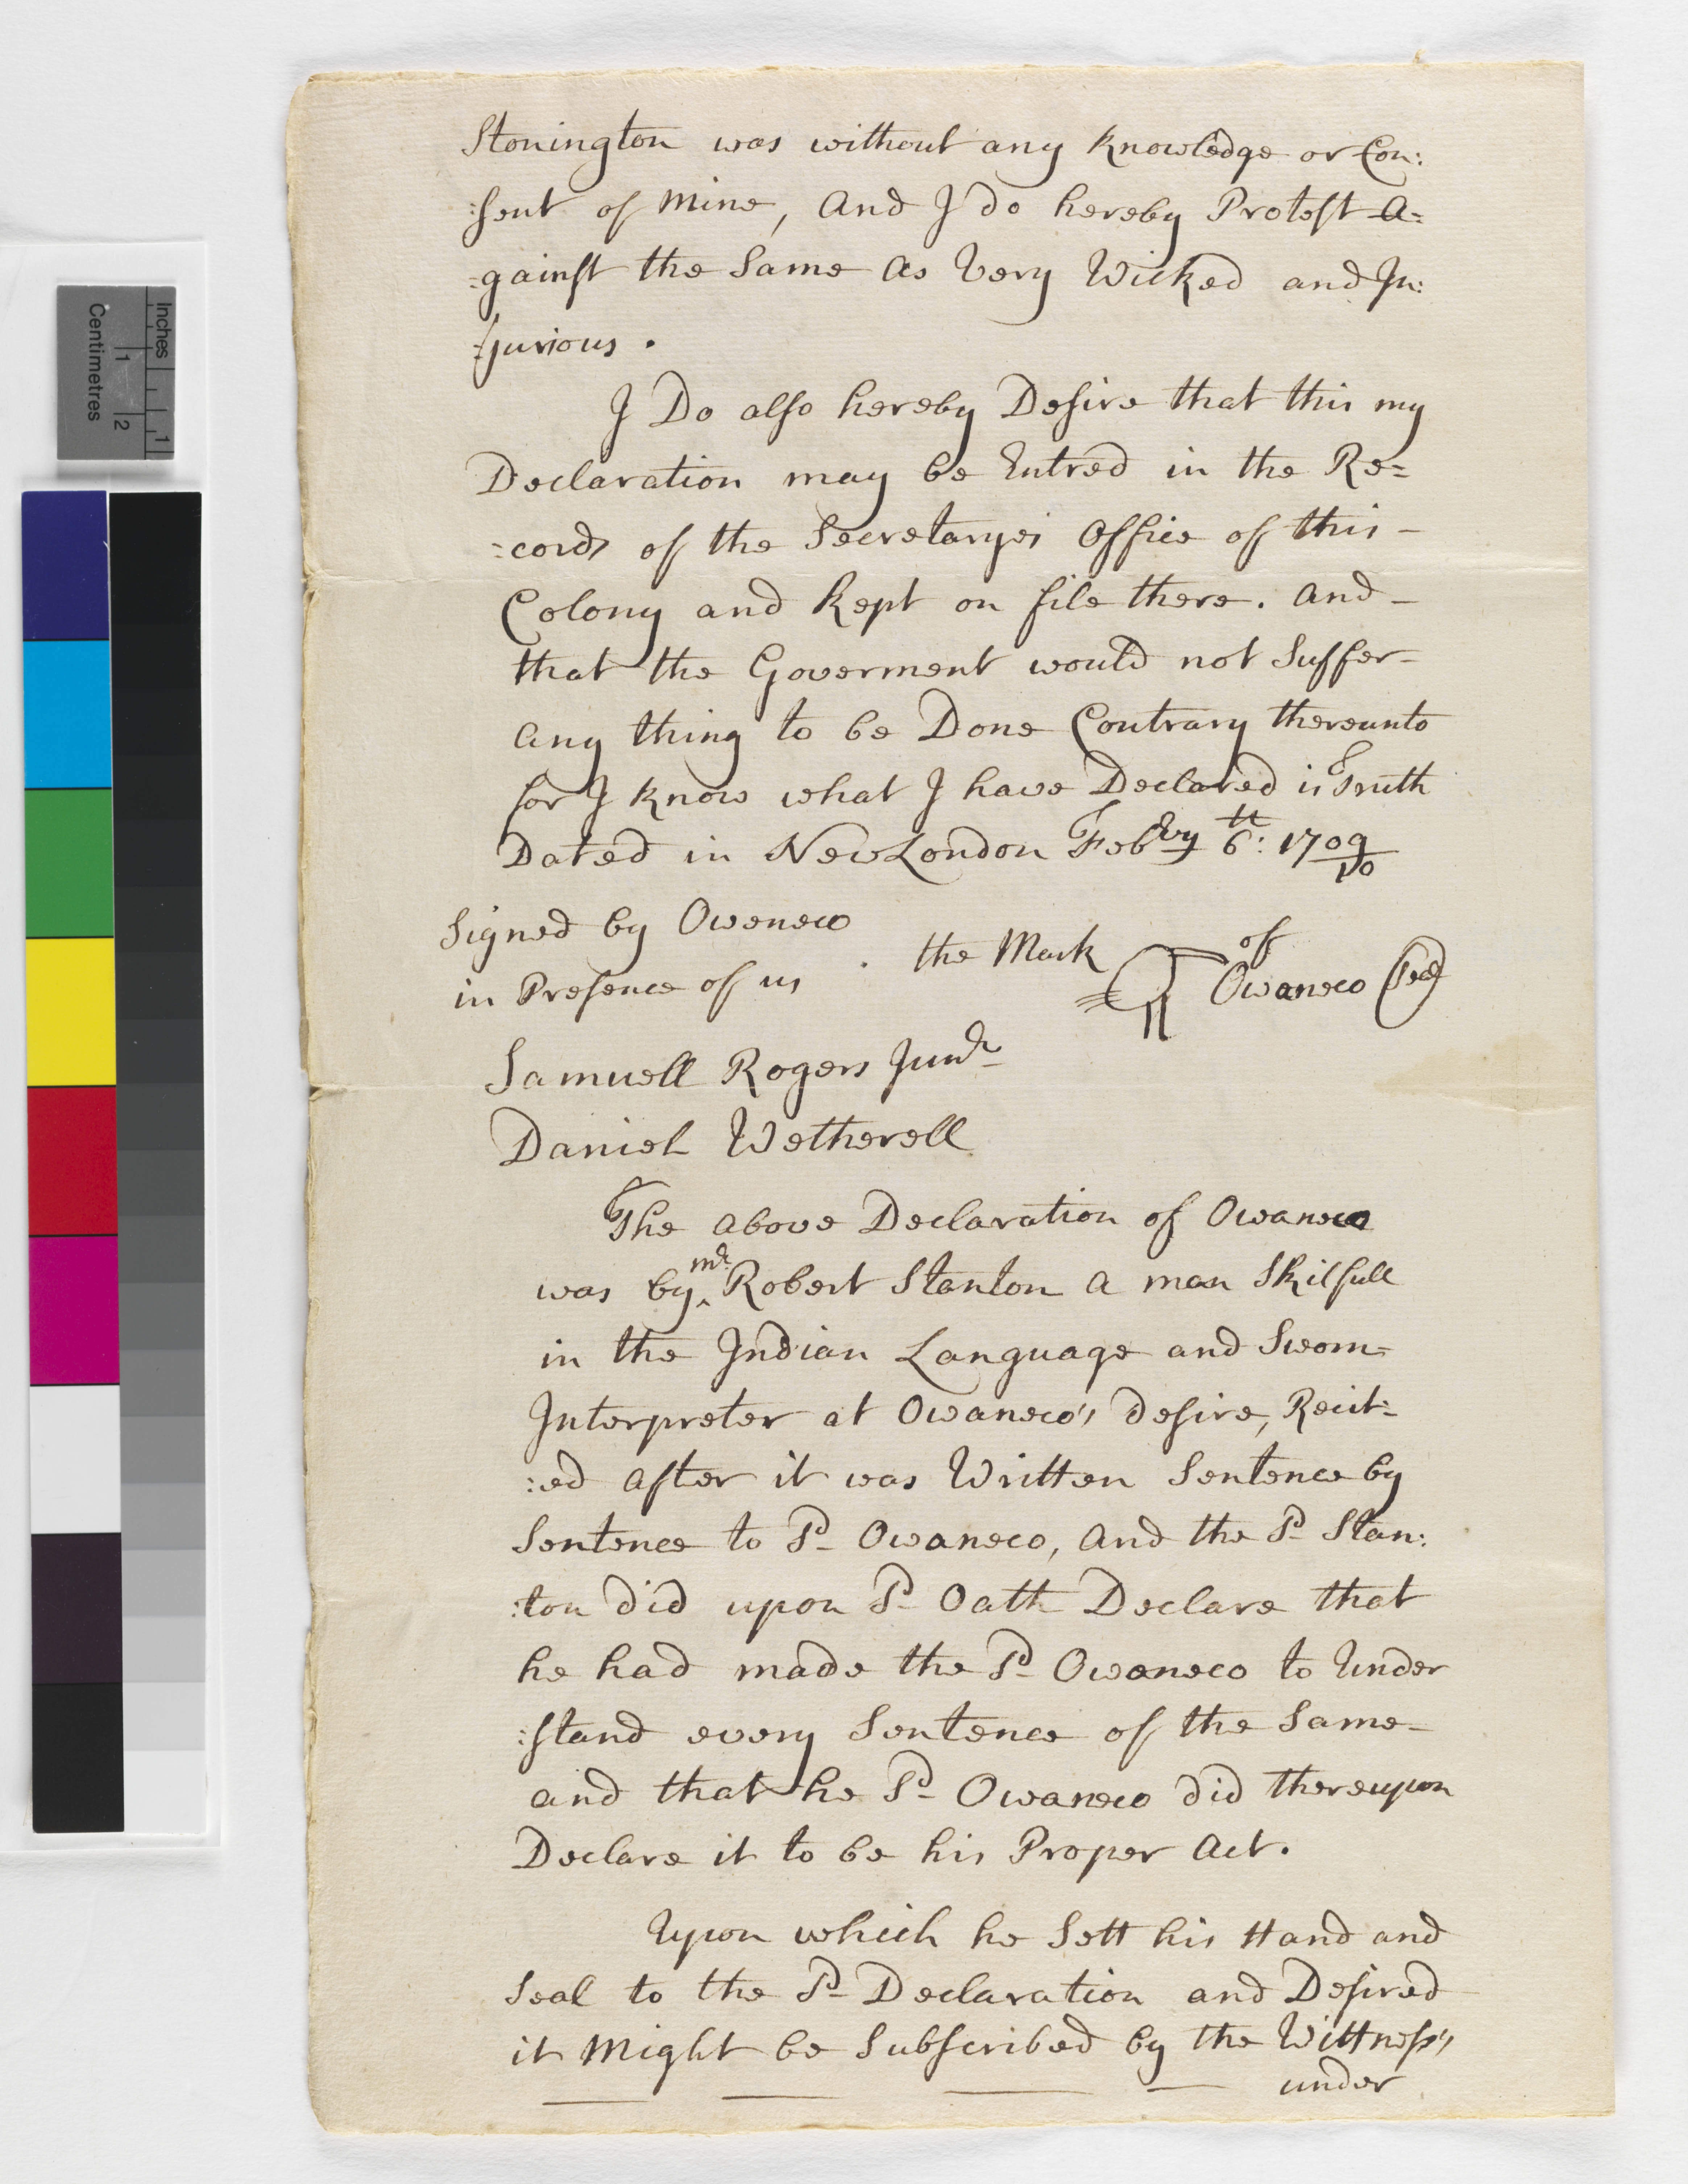 Inches
1
Centimetres
1
2
Stonington was without any Knowledge or Con:
:sent of Mine, And I do hereby Protest A=
=gainst the Same As Very Wicked and In:
=jurious .
I Do also hereby Desire that this my
Declaration may be Entred in the Re=
=cords of the Secretaryes Office of this -
Colony and Kept on file there. And -
that the Goverment would not Suffer -
Any thing to be Done Contrary thereunto
for I Know what I have Declared is Truth
Dated in New London Febry 6th: 1709/10
Signed by Oweneco
in Presence of us
the Mark of
Owaneco Seal
Samuell Rogers Junr
Daniel Wetherell
The Above Declaration of Owaneco
was by ^ mr Robert Stanton A man Skilfull
in the Indian Language and Sworn =
Interpreter at Owaneco's desire, Recit=
:ed After it was Written Sentence by
Sentence to Sd Owaneco, And the Sd Stan:
:ton did upon Sd Oath Declare that
he had made the Sd Owaneco to Under
:stand every Sentence of the Same -
and that he Sd Owaneco did thereupon
Declare it to be his Proper Act.
Upon which he Sett his Hand and
Seal to the Sd Declaration and Desired
it Might be Subscribed by the Wittness's
under